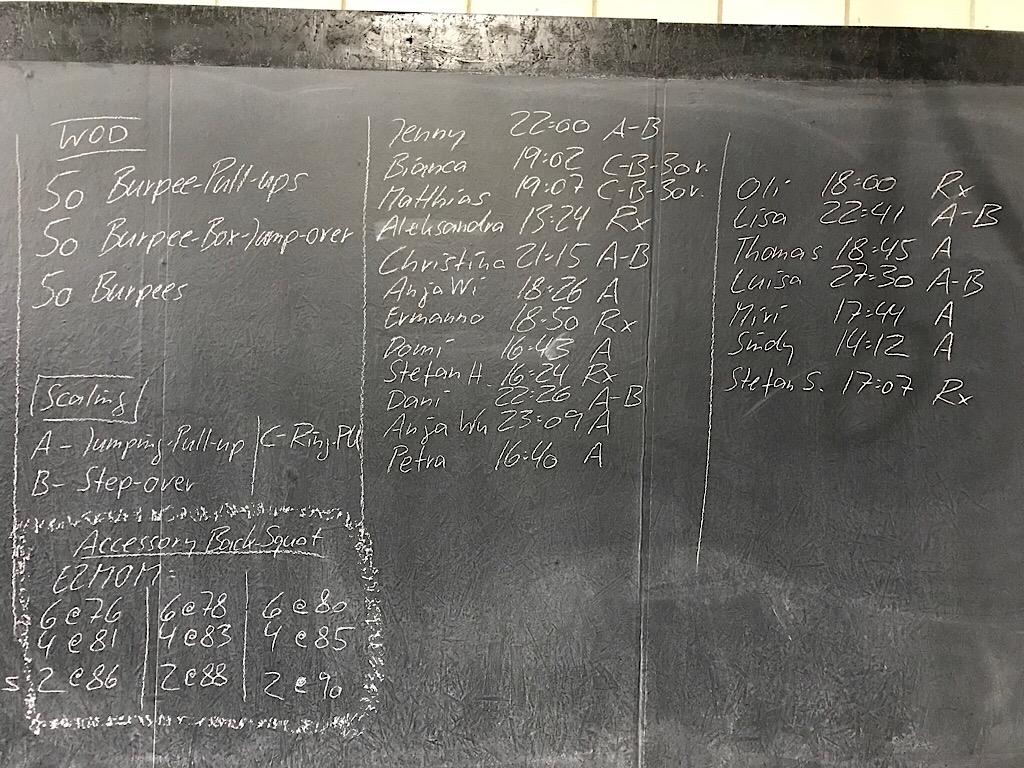 WOD
50 Burpee-Pull-ups
50 Burpee-Box-Jump-over
50 Burpees
Scaling
A - Jumping-Pull-up
B - Step-over
C - Ring-PU
Accessory Back-Squat
E2MOM:
6 @ 76 6 @ 78 6 @ 80
4 @ 81 4 @ 83 4 @ 85
2 @ 86 2 @ 88 2 @ 90
Jenny 22:00 A-B
Bianca 19:02 C-B-30r.
Matthias 19:07 C-B-30r.
Aleksandra 13:24 Rx
Christina 21:15 A-B
Anja Wi 18:26 A
Ermanno 18:50 Rx
Domi 16:43 A
Stefan H. 16:24 Rx
Dani 22:26 A-B
Anja Wu 23:09 A
Petra 16:40 A
Oli 18:00 Rx
Lisa 22:41 A-B
Thomas 18:45 A
Luisa 27:30 A-B
Miri 17:44 A
Sindy 14:12 A
Stefan S. 17:07 Rx